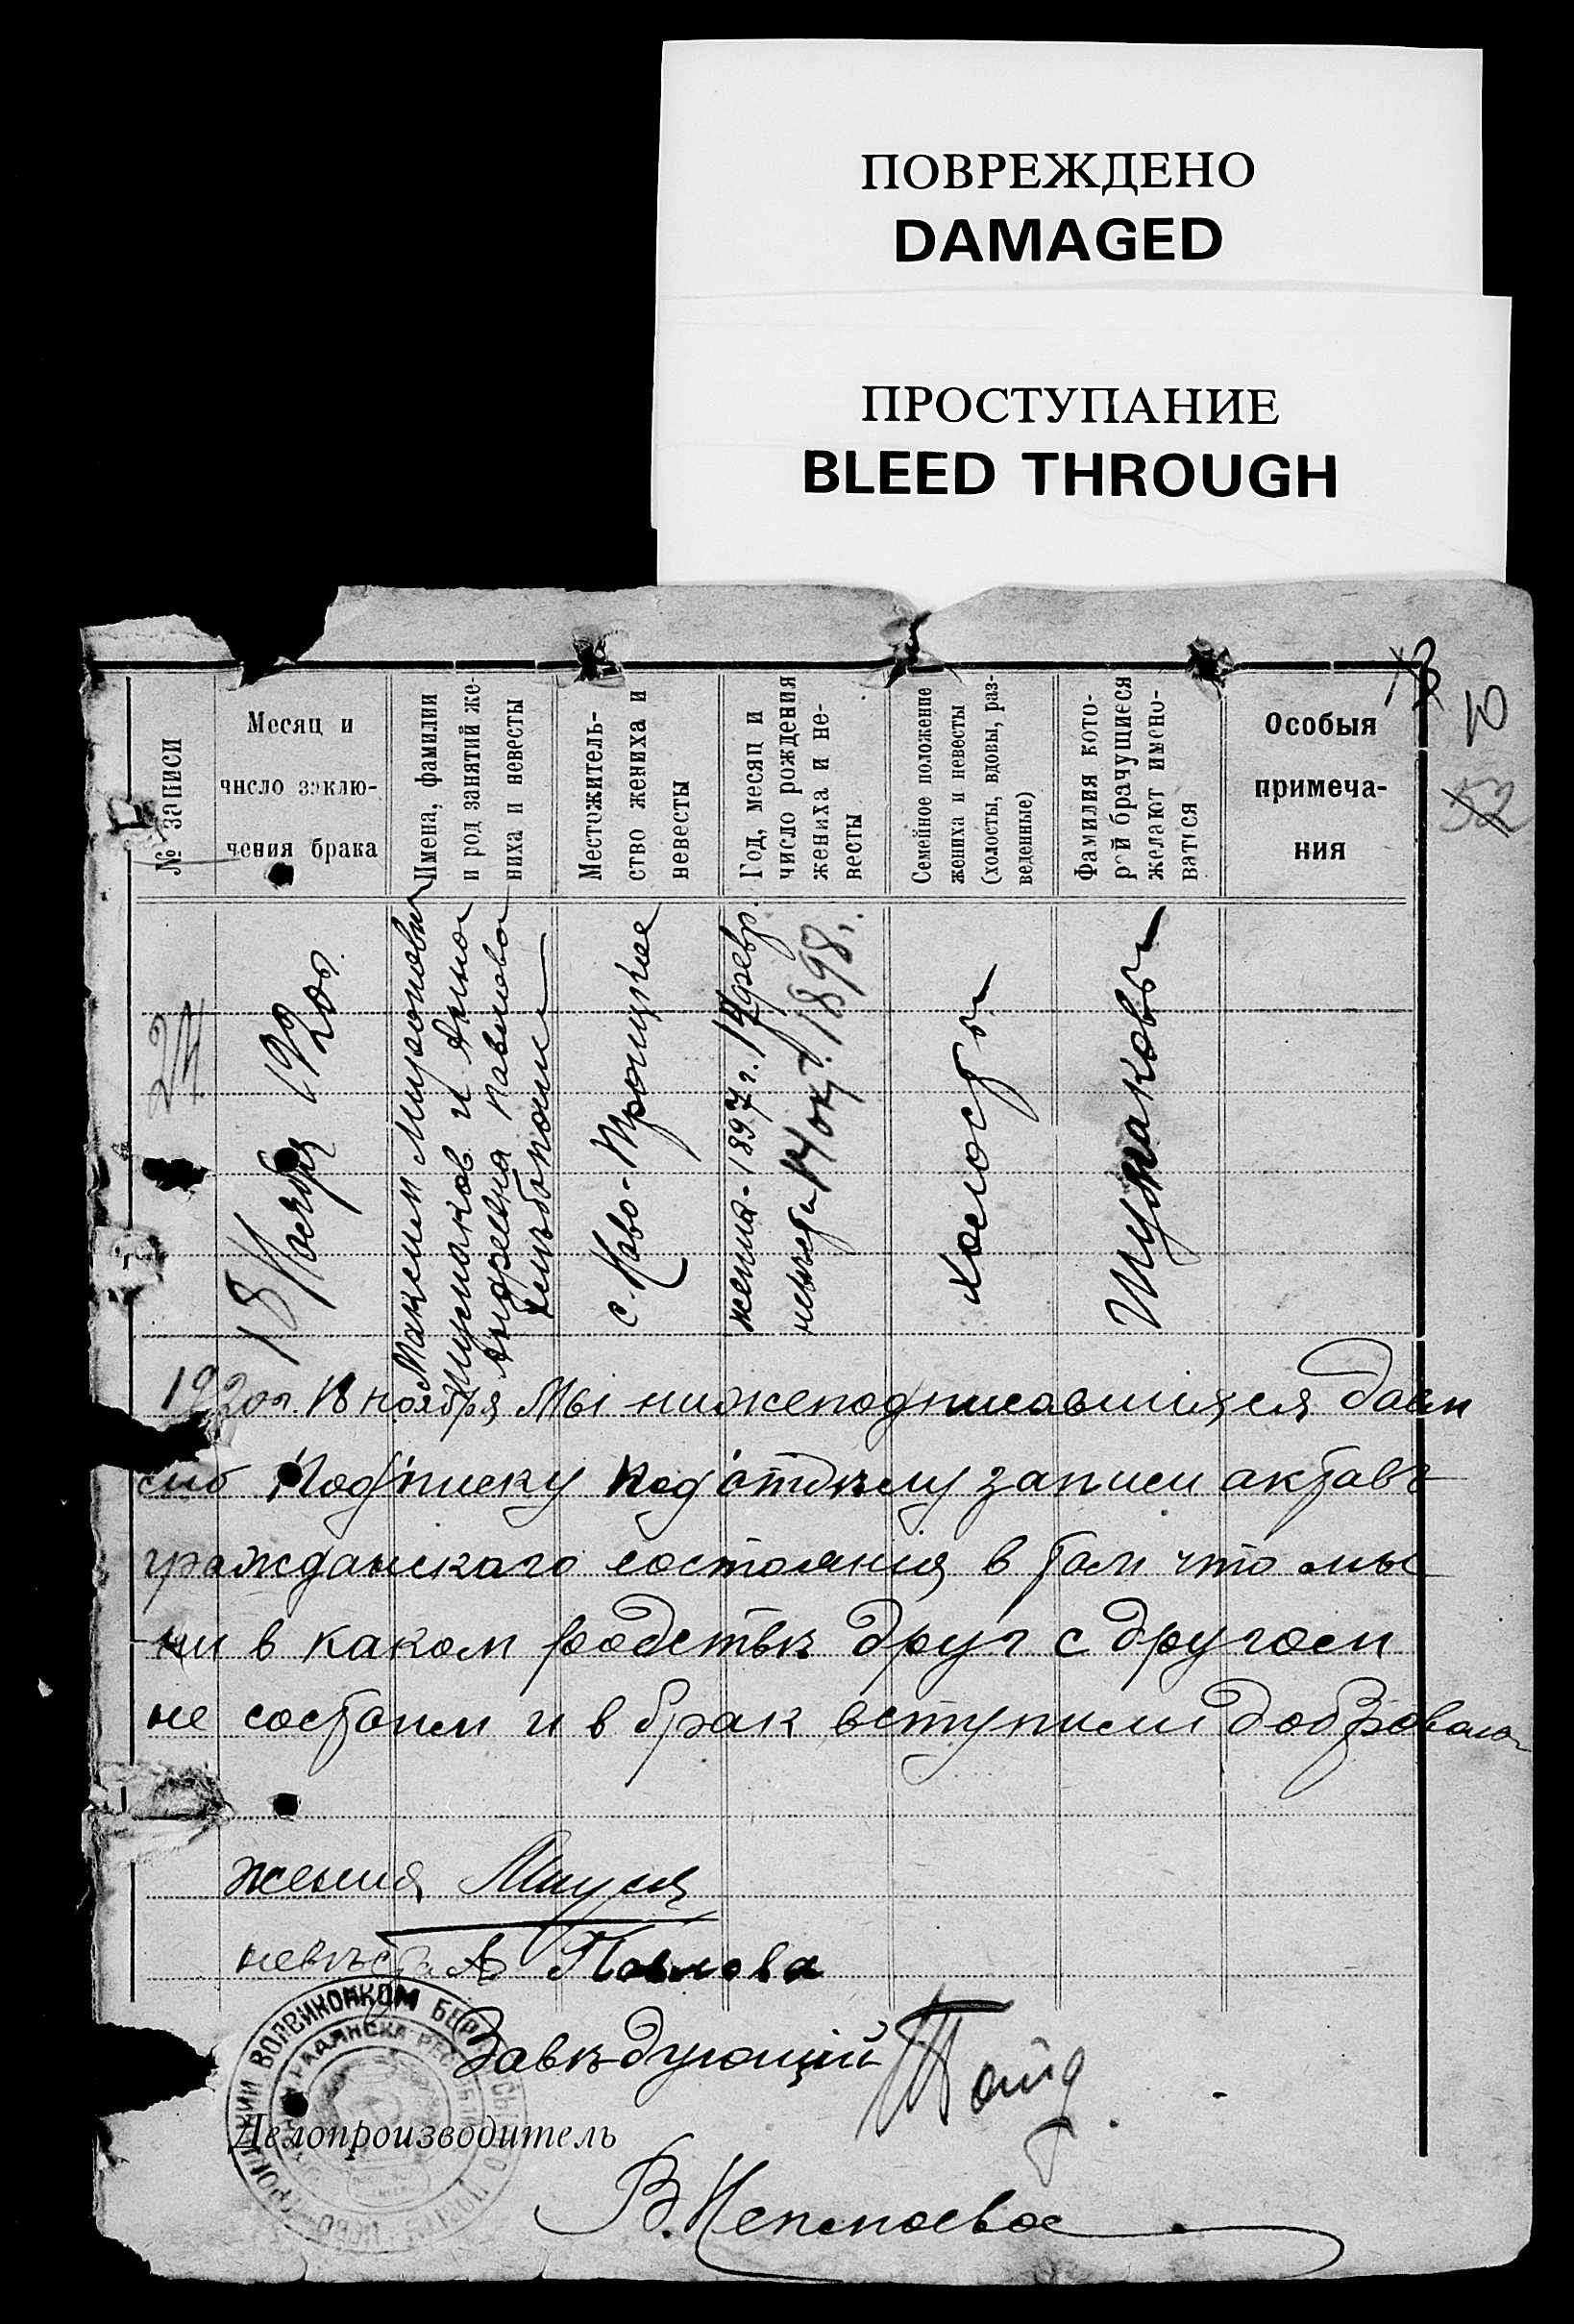 ПОВРЕЖДЕНО
DAMAGED
ПРОСТУПАНИЕ
BLEED THROUGH
10
52
№ записи
Месяц и
число заклю-
чения брака
Имена, фамилии
и род занятий же-
ниха и невесты
Местожитель-
ство жениха и
невесты
Год, месяц и
число рождения
жениха и не-
весты
Семейное положение
жениха и невесты
(холосты, вдовы, раз-
веденные)
Фамилия кото-
рой брачущиеся
желают имено-
ватися
Особыя
примеча-
ния
24
18 Ноября 1920г.
Максим Миронович
Шумаков и Анна
Андреевна Павлова
хлебопашц
с. Ново-Троицкое
жених - 1897 г. 17 февр.
невеста 14 окт. 1898г.
Холосты
Шумаковы
1920г. 18 ноября Мы нижеподписавшияся даем
сию Подписку Под'отделу записи актавъ
гражданскаго состояния в том что мы
ни в каком родствѣ друг с другом
не состоим и в брак вступили добровольно
жених
невѣста А Павлова
Завѣдующий
Делопроизводитель
ВОЛВИКОНКОМ БЕР